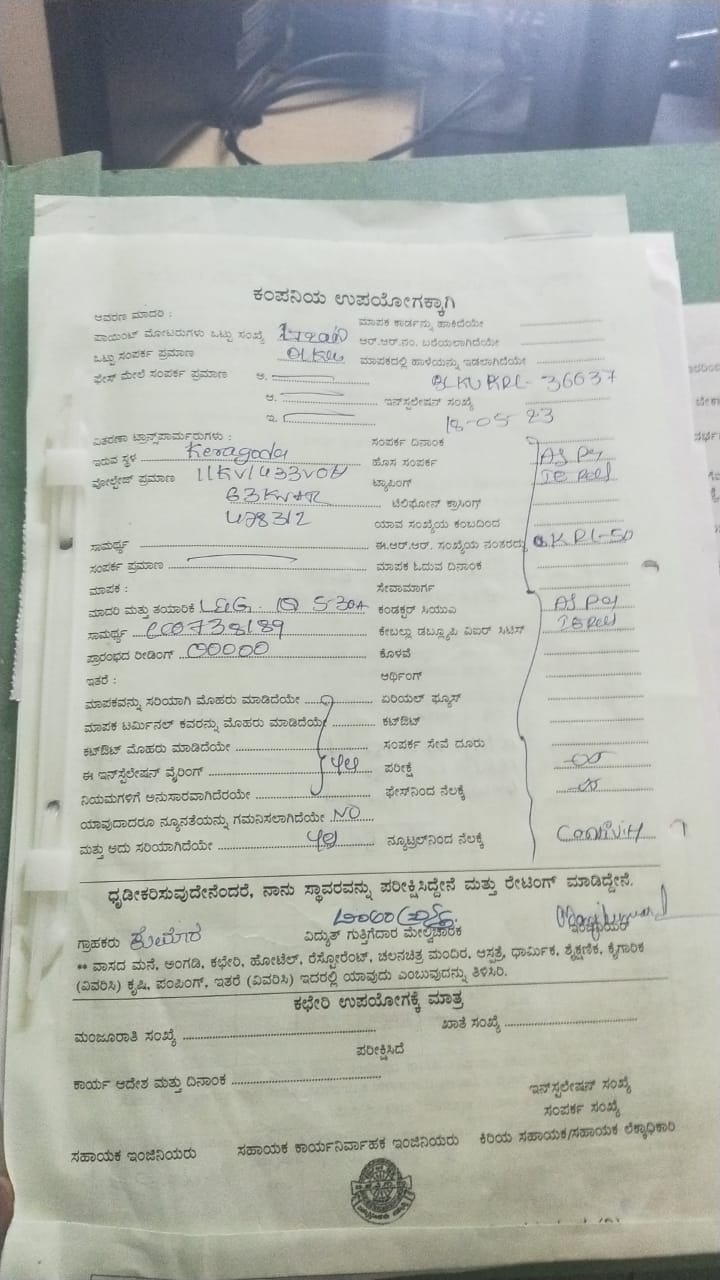 ಕಂಪನಿಯ ಉಪಯೋಗಕ್ಕಾಗಿ
ಆವರಣ ಮಾದರಿ : ಮಾಪಕ ಕಾರ್ಡನ್ನು ಹಾಕಿದೆಯೇ
ಪಾಯಿಂಟ್ ಮೋಟರುಗಳು ಒಟ್ಟು ಸಂಖ್ಯೆ ಆರ್.ಆರ್.ನಂ. ಬರೆಯಲಾಗಿದೆಯೇ
ಒಟ್ಟು ಸಂಪರ್ಕ ಪ್ರಮಾಣ ಮಾಪಕದಲ್ಲಿ ಹಾಳೆಯನ್ನು ಇಡಲಾಗಿದೆಯೇ
ಫೇಸ್ ಮೇಲೆ ಸಂಪರ್ಕ ಪ್ರಮಾಣ ಅ. 36637
ಆ. ಇನ್‌ಸ್ಟಲೇಷನ್ ಸಂಖ್ಯೆ
ಇ. 18-05-23
ವಿತರಣಾ ಟ್ರಾನ್ಸ್‌ಫಾರ್ಮರುಗಳು : ಸಂಪರ್ಕ ದಿನಾಂಕ
ಇರುವ ಸ್ಥಳ Keragoda ಹೊಸ ಸಂಪರ್ಕ
ವೋಲ್ಟೇಜ್ ಪ್ರಮಾಣ 11KV/433VOH ಟ್ಯಾಪಿಂಗ್
63KVAR ಟೆಲಿಫೋನ್ ಕ್ರಾಸಿಂಗ್
478312 ಯಾವ ಸಂಖ್ಯೆಯ ಕಂಬದಿಂದ
ಸಾಮರ್ಥ್ಯ ಈ.ಆರ್.ಆರ್. ಸಂಖ್ಯೆಯ ನಂತರದ್ದು KPL-50
ಸಂಪರ್ಕ ಪ್ರಮಾಣ ಮಾಪಕ ಓದುವ ದಿನಾಂಕ
ಮಾಪಕ : ಸೇವಾಮಾರ್ಗ
ಮಾದರಿ ಮತ್ತು ತಯಾರಿಕೆ L&G 5-30A ಕಂಡಕ್ಟರ್ ಸಿಯುವಿ
ಸಾಮರ್ಥ್ಯ CC0738189 ಕೇಬಲ್ಲು ಡಬ್ಲ್ಯೂಪಿ ವಿಐಆರ್ ಸಿಟಿಸ್
ಪ್ರಾರಂಭದ ರೀಡಿಂಗ್ 00000 ಕೊಳವೆ
ಇತರೆ : ಅರ್ಥಿಂಗ್
ಮಾಪಕವನ್ನು ಸರಿಯಾಗಿ ಮೊಹರು ಮಾಡಿದೆಯೇ ಏರಿಯಲ್ ಫ್ಯೂಸ್
ಮಾಪಕ ಟರ್ಮಿನಲ್ ಕವರನ್ನು ಮೊಹರು ಮಾಡಿದೆಯೇ ಕಟ್‌ಔಟ್
ಕಟ್‌ಔಟ್ ಮೊಹರು ಮಾಡಿದೆಯೇ ಸಂಪರ್ಕ ಸೇವೆ ದೂರು
ಈ ಇನ್‌ಸ್ಟಲೇಷನ್ ವೈರಿಂಗ್ ಪರೀಕ್ಷೆ
ನಿಯಮಗಳಿಗೆ ಅನುಸಾರವಾಗಿದೆರೆಯೇ ಫೇಸ್‌ನಿಂದ ನೆಲಕ್ಕೆ
ಯಾವುದಾದರೂ ನ್ಯೂನತೆಯನ್ನು ಗಮನಿಸಲಾಗಿದೆಯೇ NO
ಮತ್ತು ಅದು ಸರಿಯಾಗಿದೆಯೇ ನ್ಯೂಟ್ರಲ್‌ನಿಂದ ನೆಲಕ್ಕೆ
ಧೃಡೀಕರಿಸುವುದೇನೆಂದರೆ, ನಾನು ಸ್ಥಾವರವನ್ನು ಪರೀಕ್ಷಿಸಿದ್ದೇನೆ ಮತ್ತು ರೇಟಿಂಗ್ ಮಾಡಿದ್ದೇನೆ.
ಗ್ರಾಹಕರು ವಿದ್ಯುತ್ ಗುತ್ತಿಗೆದಾರ ಮೇಲ್ವಿಚಾರಕ ಇಂಜಿನಿಯರ್
** ವಾಸದ ಮನೆ, ಅಂಗಡಿ, ಕಛೇರಿ, ಹೋಟೆಲ್, ರೆಸ್ಟೋರೆಂಟ್, ಚಲನಚಿತ್ರ ಮಂದಿರ, ಆಸ್ಪತ್ರೆ, ಧಾರ್ಮಿಕ, ಶೈಕ್ಷಣಿಕ, ಕೈಗಾರಿಕ
(ವಿವರಿಸಿ) ಕೃಷಿ, ಪಂಪಿಂಗ್, ಇತರೆ (ವಿವರಿಸಿ) ಇದರಲ್ಲಿ ಯಾವುದು ಎಂಬುವುದನ್ನು ತಿಳಿಸಿರಿ.
ಕಛೇರಿ ಉಪಯೋಗಕ್ಕೆ ಮಾತ್ರ
ಮಂಜೂರಾತಿ ಸಂಖ್ಯೆ ಖಾತೆ ಸಂಖ್ಯೆ
ಪರೀಕ್ಷಿಸಿದೆ
ಕಾರ್ಯ ಆದೇಶ ಮತ್ತು ದಿನಾಂಕ
ಇನ್‌ಸ್ಟಲೇಶನ್ ಸಂಖ್ಯೆ
ಸಂಪರ್ಕ ಸಂಖ್ಯೆ
ಸಹಾಯಕ ಇಂಜಿನಿಯರು ಸಹಾಯಕ ಕಾರ್ಯನಿರ್ವಾಹಕ ಇಂಜಿನಿಯರು ಕಿರಿಯ ಸಹಾಯಕ/ಸಹಾಯಕ ಲೆಕ್ಕಾಧಿಕಾರಿ